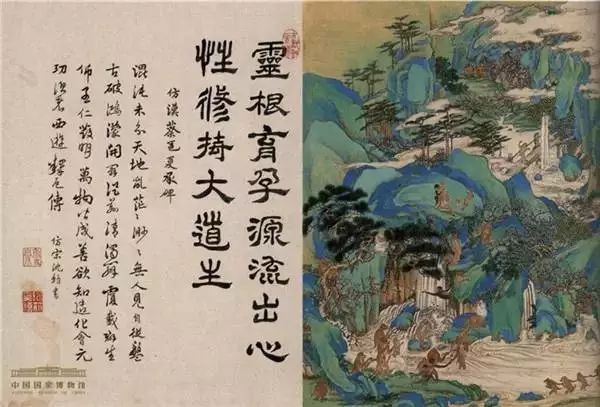 靈根育孕源流出心
性修持大道生
仿漢蔡邕夏承碑
混沌未分天地亂茫〻渺〻無人見自從盤
古破鴻濛開闢從茲清濁辨覆載群生
仰至仁發明萬物皆成善欲知造化會元
功須看西遊釋厄傳
中国国家博物馆
NATIONAL MUSEUM OF CHINA